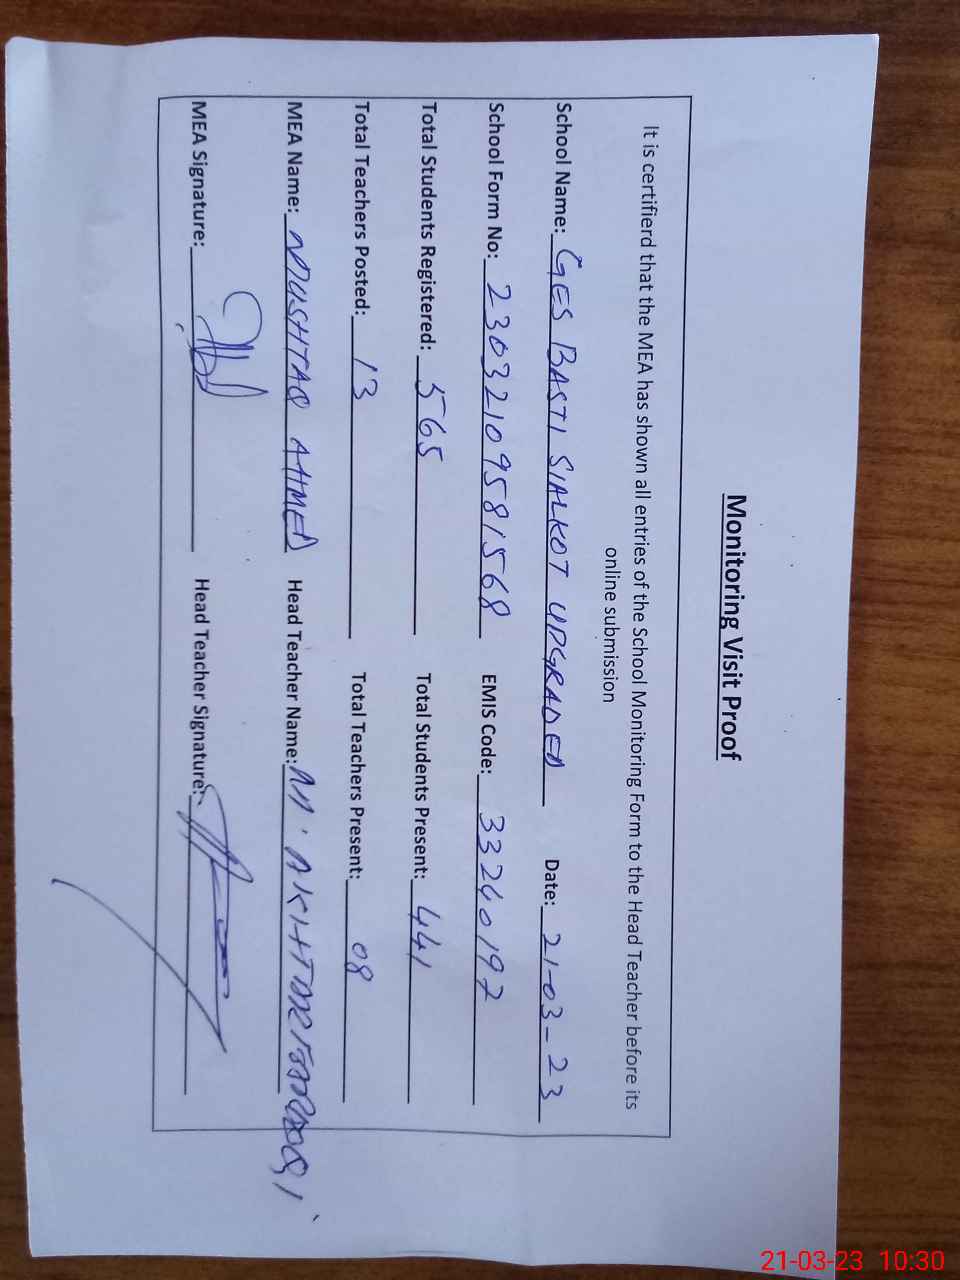 Monitoring Visit Proof
It is certifierd that the MEA has shown all entries of the School Monitoring Form to the Head Teacher before its
online submission
School Name: GES BASTI SIALKOT UPGRADED Date: 21-03-23
School Form No: 23032109581568 EMIS Code: 33240197
Total Students Registered: 565 Total Students Present: 441
Total Teachers Posted: 13 Total Teachers Present: 08
MEA Name: MUSHTAQ AHMED Head Teacher Name: M.
MEA Signature: Head Teacher Signature:
21-03-23 10:30